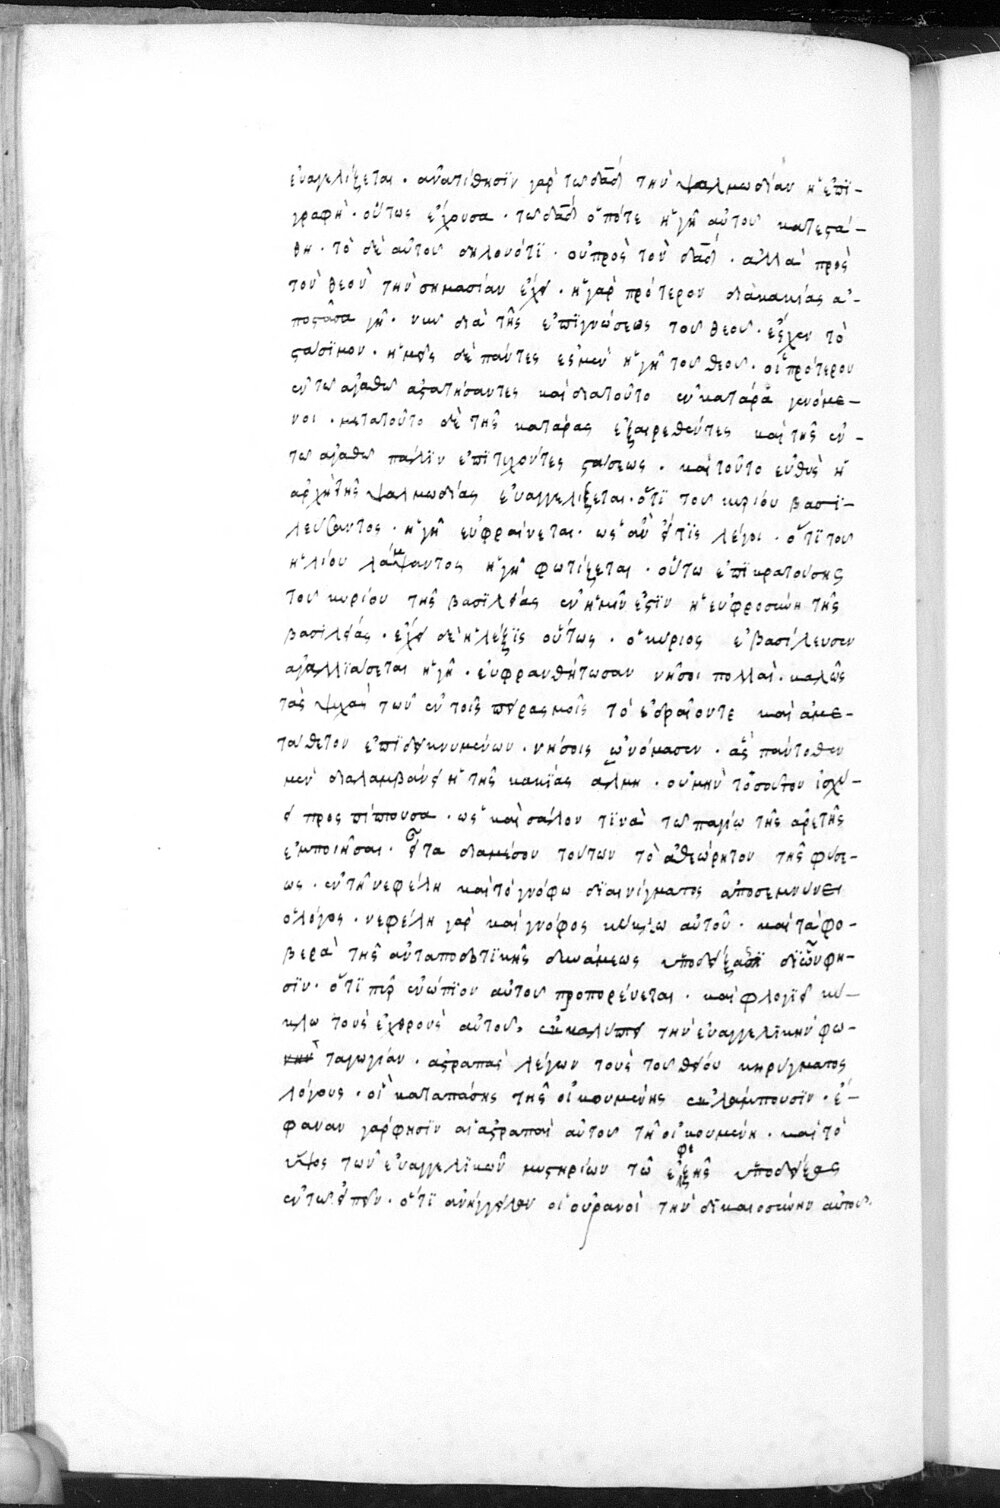 εὐαγγελίζεται. ἀνατίθησϊν γὰρ τῶ δα̅δ τὴν ψαλμωδίαν ἡ ἐπϊ-
γραφὴ. οὕτως ἔχουσα. τῶ δα̅δ ὁπότε ἡ γῆ αὐτοῦ κατεστά-
θη. τὸ δὲ αὐτοῦ δηλονότϊ. οὐ πρὸς τὸν δα̅δ. ἀλλὰ πρὸς
τὸν θεὸν τὴν σημασίαν ἔχει. ἡ γὰρ πρότερον διὰ κακίας ἀ-
ποστᾶσα γῆ. νῦν διὰ τῆς ἐπϊγνώσεως τοῦ θεοῦ. ἔσχεν τὸ
στάσϊμον. ἡμεῖς δὲ πάντες ἐσμὲν ἡ γῆ τοῦ θεοῦ. οἱ πρότερον
ἐν τῶ ἀγαθῶ ἀστατήσαντες καὶ διατοῦτο ἐν κατάρα γενόμε-
νοι. μετατοῦτο δὲ τῆς κατάρας ἐξαιρεθέντες καὶ τῆς ἐν
τῶ ἀγαθῶ πάλϊν ἐπϊτυχόντες στάσεως. καὶ τοῦτο εὐθὺς ἡ
ἀρχὴ τῆς ψαλμωδίας εὐαγγελίζεται. ὅτϊ τοῦ κυρίου βασϊ-
λεύσαντος. ἡ γῆ εὐφραίνεται. ὡς ἂν εἴ τϊς λέγοι. ὅτϊ τοῦ
ἡλίου λάμψαντος ἡ γῆ φωτίζεται. οὕτω ἐπϊκρατούσης
τοῦ κυρίου τῆς βασϊλείας ἐν ἡμῖν ἐστϊν ἡ εὐφροσύνη τῆς
βασϊλείας. ἔχει δὲ ἡ λέξϊς οὕτως. ὁ κύριος ἐβασίλευσεν
ἀγαλλϊάσεται ἡ γῆ. εὐφρανθήτωσαν νῆσοι πολλαὶ. καλῶς
τὰς ψυχὰς τῶν ἐν τοῖς πειρασμοῖς τὸ ἑδραῖόν τε καὶ ἀμε-
τάθετον ἐπϊδεικνυμένων. νήσοις ὠνόμασεν. ἃς πάντοθεν
μὲν διαλαμβάνει ἡ τῆς κακίας ἅλμη. οὐ μὴν τοσοῦτον ἰσχύ-
ει προσπίπτουσα. ὡς καὶ σάλον τϊνὰ τῶ παγίω τῆς ἀρετῆς
ἐμποιῆσαι. εἶτα διαμέσου τούτων τὸ ἀθεώρητον τῆς φύσε-
ως. ἐν τῆ νεφέλη καὶ τῶ γνόφω δϊ αἰνίγματος ἀποσεμνύνει
ὁ λόγος. νεφέλη γὰρ καὶ γνόφος κύκλω αὐτοῦ. καὶ τὰ φο-
βερὰ τῆς ἀνταποδοτϊκῆς δυνάμεως ὑποδείξασϊ δϊ ὧν φη-
σϊν. ὅτϊ πῦρ ἐνώπϊον αὐτοῦ προπορεύεται. καὶ φλογϊεῖ κύ-
κλω τοὺς ἐχθροὺς αὐτοῦ. ἐκκαλύπτει τὴν εὐαγγελϊκὴν φω-
ταγωγίαν. ἀστραπὰς λέγων τοὺς τοῦ θείου κηρύγματος
λόγους. οἳ καταπάσης τῆς οἰκουμένης ἐκλάμπουσϊν. ἔ-
φαναν γάρ φησϊν αἱ ἀστραπαὶ αὐτοῦ τῆ οἰκουμένη. καὶ τὸ
ὕψος τῶν εὐαγγελϊκῶν μυστηρίων τῶ ἐφεξῆς ὑποδείξας
ἐν τῶ εἰπεῖν. ὅτϊ ἀνήγγειλαν οἱ οὐρανοὶ τὴν δϊκαιοσύνην αὐτοῦ.